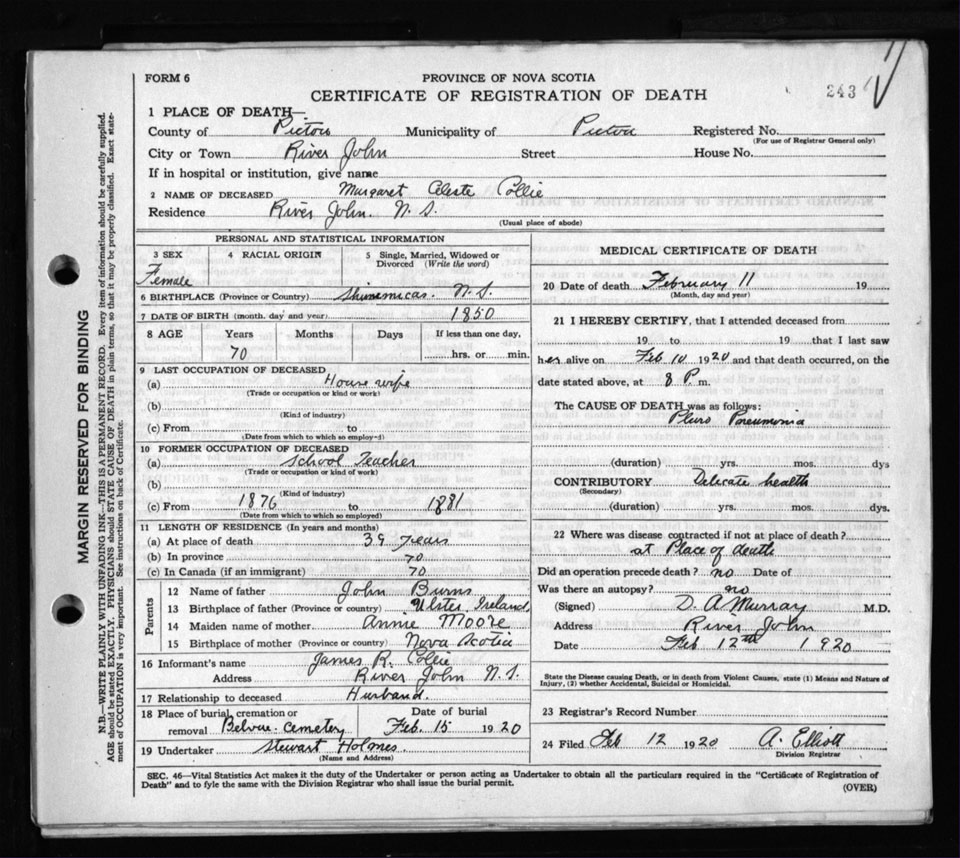 FORM 6
PROVINCE OF NOVA SCOTIA
CERTIFICATE OF REGISTRATION OF DEATH
243
1 PLACE OF DEATH
County of Pictou Municipality of Pictou Registered No.
(For use of Registrar General only)
City or Town River John Street House No.
If in hospital or institution, give name
2 NAME OF DECEASED Margaret Celeste Collie
Residence River John. N. S.
(Usual place of abode)
PERSONAL AND STATISTICAL INFORMATION
3 SEX 4 RACIAL ORIGIN 5 Single, Married, Widowed or Divorced (Write the word)
Female
6 BIRTHPLACE (Province or Country) Shinemicas. N. S.
7 DATE OF BIRTH (month, day and year) 1850
8 AGE Years Months Days If less than one day,
70 hrs. or min.
9 LAST OCCUPATION OF DECEASED
(a) House wife
(Trade or occupation or kind or work)
(b)
(Kind of industry)
(c) From to
(Date from which to which so employ-d)
10 FORMER OCCUPATION OF DECEASED
(a) School Teacher
(Trade or occupation or kind of work)
(b)
(Kind of industry)
(c) From 1876 to 1881
(Date from which to which so employed)
11 LENGTH OF RESIDENCE (In years and months)
(a) At place of death 39 years
(b) In province 70
(c) In Canada (if an immigrant) 70
Parents
12 Name of father John Burns
13 Birthplace of father (Province or country) Ulster, Ireland
14 Maiden name of mother Annie Moore
15 Birthplace of mother (Province or country) Nova Scotia
16 Informant's name James R. Collie
Address River John N. S.
17 Relationship to deceased Husband.
18 Place of burial, cremation or removal Belvue. Cemetery Date of burial Feb. 15 1920
19 Undertaker Stewart Holmes.
(Name and Address)
MEDICAL CERTIFICATE OF DEATH
20 Date of death February 11 19
(Month, day and year)
21 I HEREBY CERTIFY, that I attended deceased from
19 to 19 that I last saw
her alive on Feb 10 1920 and that death occurred, on the
date stated above, at 8 P. m.
The CAUSE OF DEATH was as follows:
Pleuro Pneumonia
(duration) yrs. mos. dys
CONTRIBUTORY Delicate health
(Secondary)
(duration) yrs. mos. dys.
22 Where was disease contracted if not at place of death?
at Place of death
Did an operation precede death? no Date of
Was there an autopsy? no
(Signed) D. A Murray M.D.
Address River John
Date Feb 12th 1920
State the Disease causing Death, or in death from Violent Causes, state (1) Means and Nature of Injury, (2) whether Accidental, Suicidal or Homicidal.
23 Registrar's Record Number
24 Filed Feb 12 1920 A. Elliott
Division Registrar
SEC. 46—Vital Statistics Act makes it the duty of the Undertaker or person acting as Undertaker to obtain all the particulars required in the "Certificate of Registration of
Death" and to fyle the same with the Division Registrar who shall issue the burial permit.
(OVER)
MARGIN RESERVED FOR BINDING
N.B.—WRITE PLAINLY WITH UNFADING INK—THIS IS A PERMANENT RECORD. Every item of information should be carefully supplied.
AGE should be stated EXACTLY. PHYSICIANS should STATE CAUSE OF DEATH in plain terms, so that it may be properly classified. Exact state-
ment of OCCUPATION is very important. See instructions on back of Certificate.